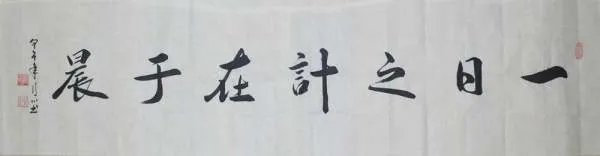 一日之計在于晨